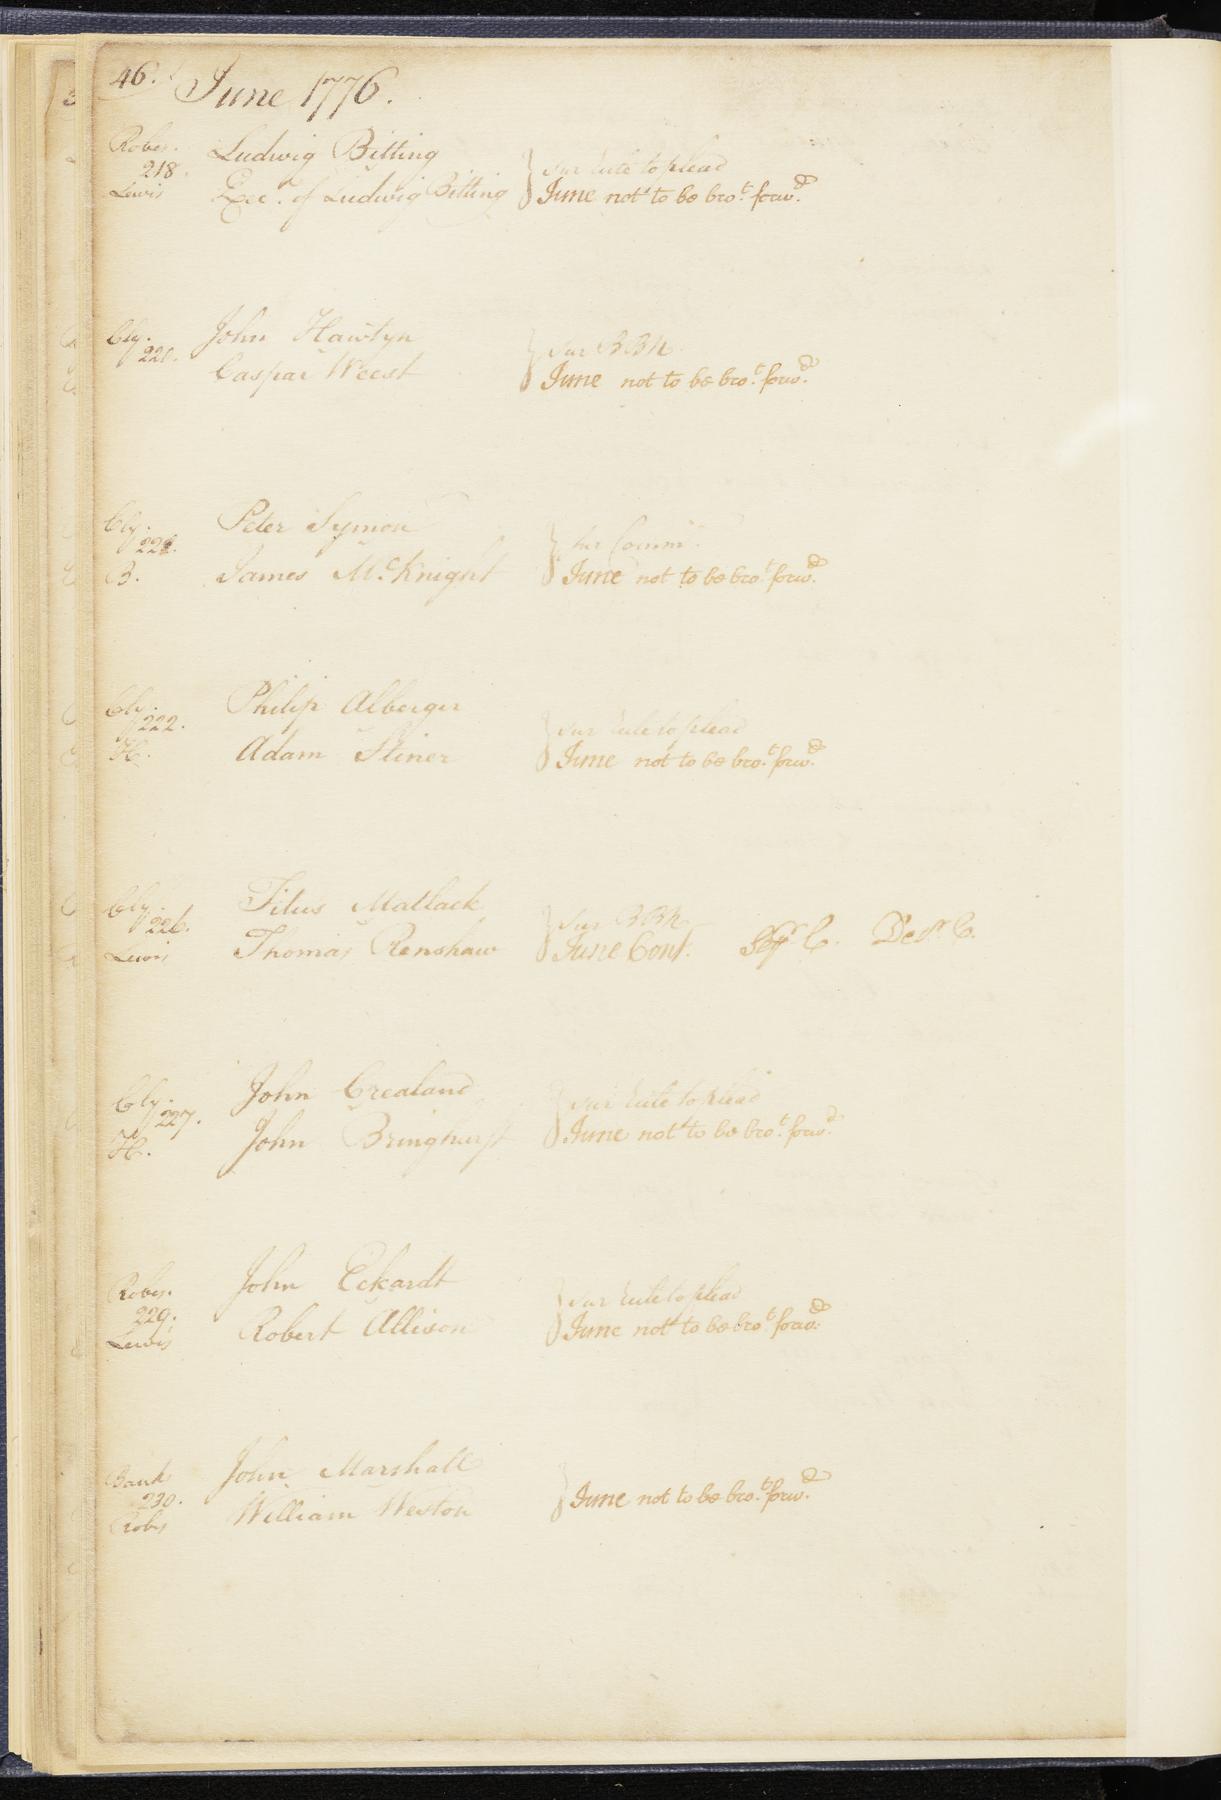 46. June 1776.
Robes. Ludwig Bitting
218. sur rule to plead
Lewis Exe. of Ludwig Bitting June not to be bro.t forw.d
Cly. John Hawtyn sur BBh.
220. Caspar Weest June not to be bro.t forw.d
Cly. Peter Symon
sur Comm.
B. James McKnight June not to be bro.t forw.d
Cly. Philip Alberger
222. sur rule to plead
H. Adam Stiner June not to be bro.t forw.d
Cly. Titus Matlack
226. sur BBh
Lewis Thomas Renshaw June Cont. Sepr. C. Decr. C.
Cly. John Crealand sur rule to plead
227.
H. John Bringhurst June not to be bro.t forw.d
Robes. John Eckardt
229. sur rule to plead
Lewis Robert Allison June not to be bro.t forw.d
Bank John Marshall
230. June not to be bro.t forw.d
Robs William Weston